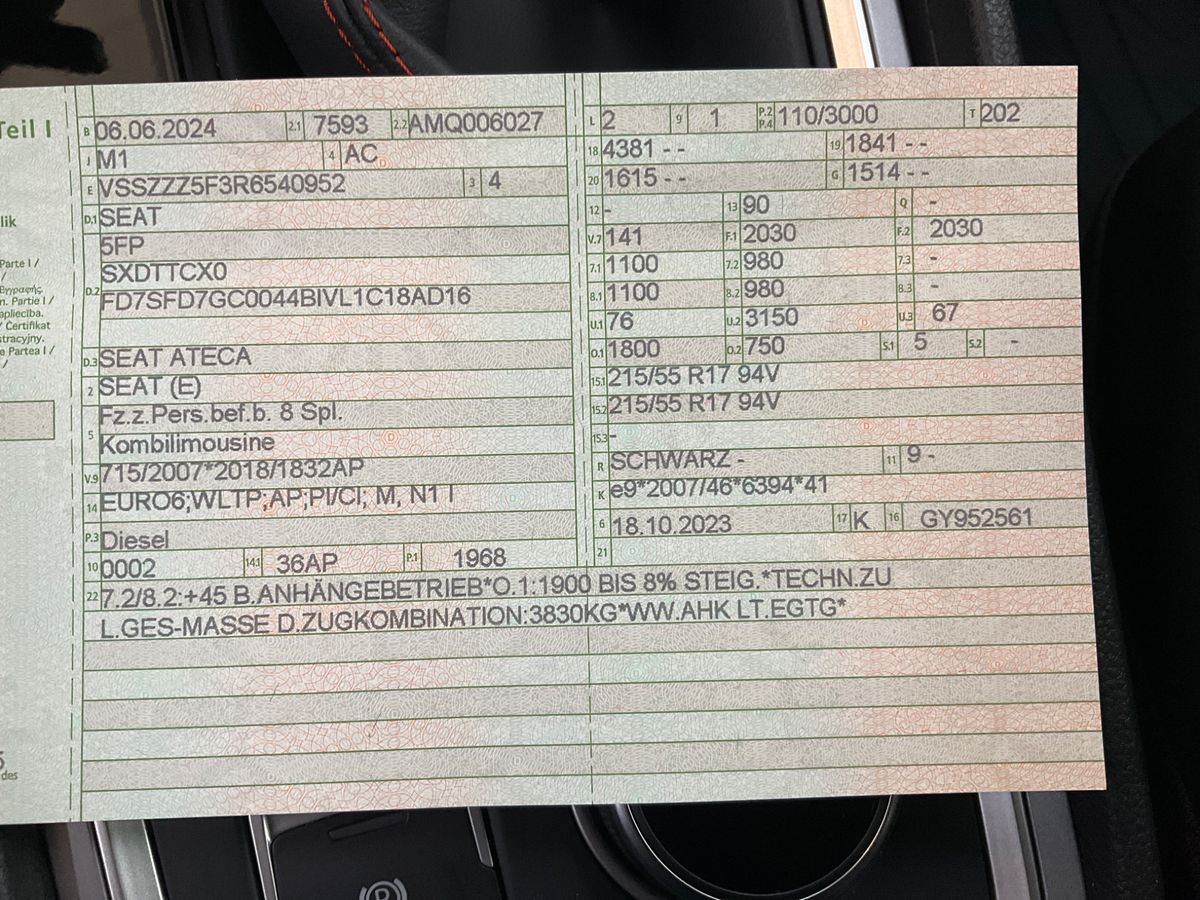 Teil I
B 06.06.2024 2.1 7593 2.2 AMQ006027
J M1 4 AC
E VSSZZZ5F3R6540952 3 4
D.1 SEAT
5FP
SXDTTCX0
D.2 FD7SFD7GC0044BIVL1C18AD16
D.3 SEAT ATECA
2 SEAT (E)
Fz.z.Pers.bef.b. 8 Spl.
5 Kombilimousine
V.9 715/2007*2018/1832AP
14 EURO6;WLTP;AP;PI/CI; M, N1 I
P.3 Diesel
10 0002 14.1 36AP P.1 1968
L 2 9 1 P.2 P.4 110/3000 T 202
18 4381 - - 19 1841 - -
20 1615 - - G 1514 - -
12 - 13 90 Q -
V.7 141 F.1 2030 F.2 2030
7.1 1100 7.2 980 7.3 -
8.1 1100 8.2 980 8.3 -
U.1 76 U.2 3150 U.3 67
O.1 1800 O.2 750 S.1 5 S.2 -
15.1 215/55 R17 94V
15.2 215/55 R17 94V
15.3 -
R SCHWARZ - 11 9 -
K e9*2007/46*6394*41
6 18.10.2023 17 K 16 GY952561
21
22 7.2/8.2:+45 B.ANHÄNGEBETRIEB*O.1:1900 BIS 8% STEIG.*TECHN.ZU
L.GES-MASSE D.ZUGKOMBINATION:3830KG*WW.AHK LT.EGTG*
lik
Parte I /
/
Εγγραφής
n. Partie I /
apliecība.
/ Certifikat
stracyjny.
e Partea I /
/
des
P